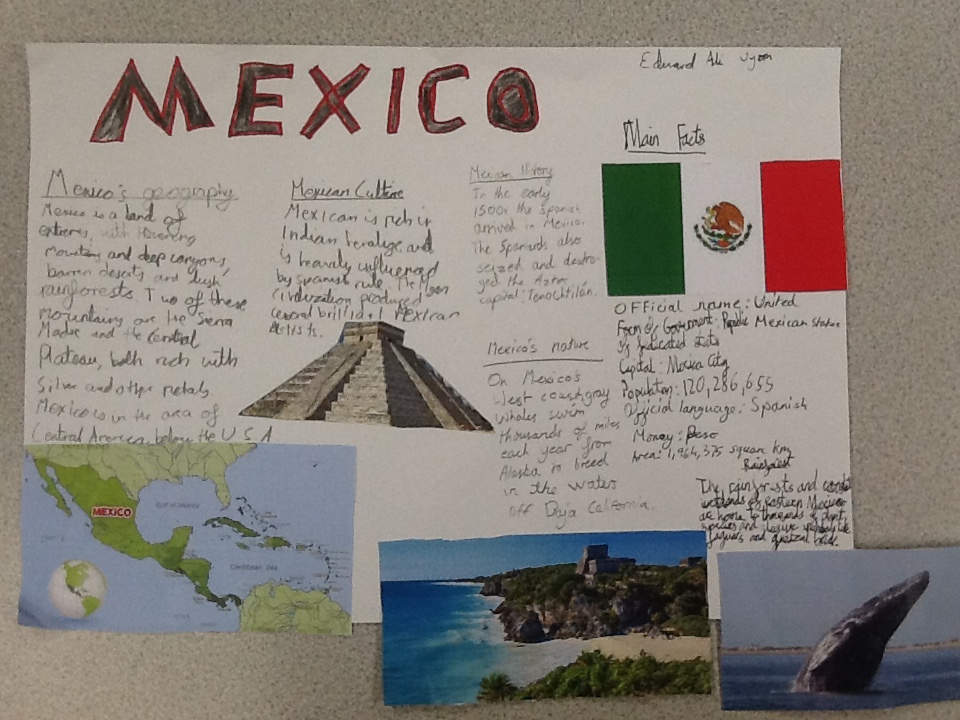 MEXICO
Edward Ali
Mexico's geography
Mexico is a land of
extremes, with towering
mountains and deep canyons,
barren deserts and lush
rainforests. Two of these
mountains are the Sierra
Madre and the Central
Plateau, both rich with
Silver and other metals
Mexico is in the area of
Central America, below the U.S.A
MEXICO
Gulf of Mexico
Caribbean Sea
Mexican Culture
Mexican is rich in
Indian heratige and
is heavily influenced
by spanish rule. The
civilization produced
several brilliant Mexican
Artists.
Mexican History
In the early
1500s the Spanish
arrived in Mexico.
The Spaniards also
seized and destro-
yed the Aztec
capital: Tenochtilán.
Mexico's nature
On Mexico's
West coast, gray
whales swim
thousands of miles
each year from
Alaska to breed
in the water
off Baja California.
Main Facts
Official name: United
Mexican States
Form of Government: Republic
of federated states
Capital: Mexico City
Population: 120,286,655
Official language: Spanish
Money: Peso
Area: 1,964,375 square km
Rainforest
The rainforests and
wetlands of eastern Mexico
are home to thousands of plant
species and elusive
jaguars and